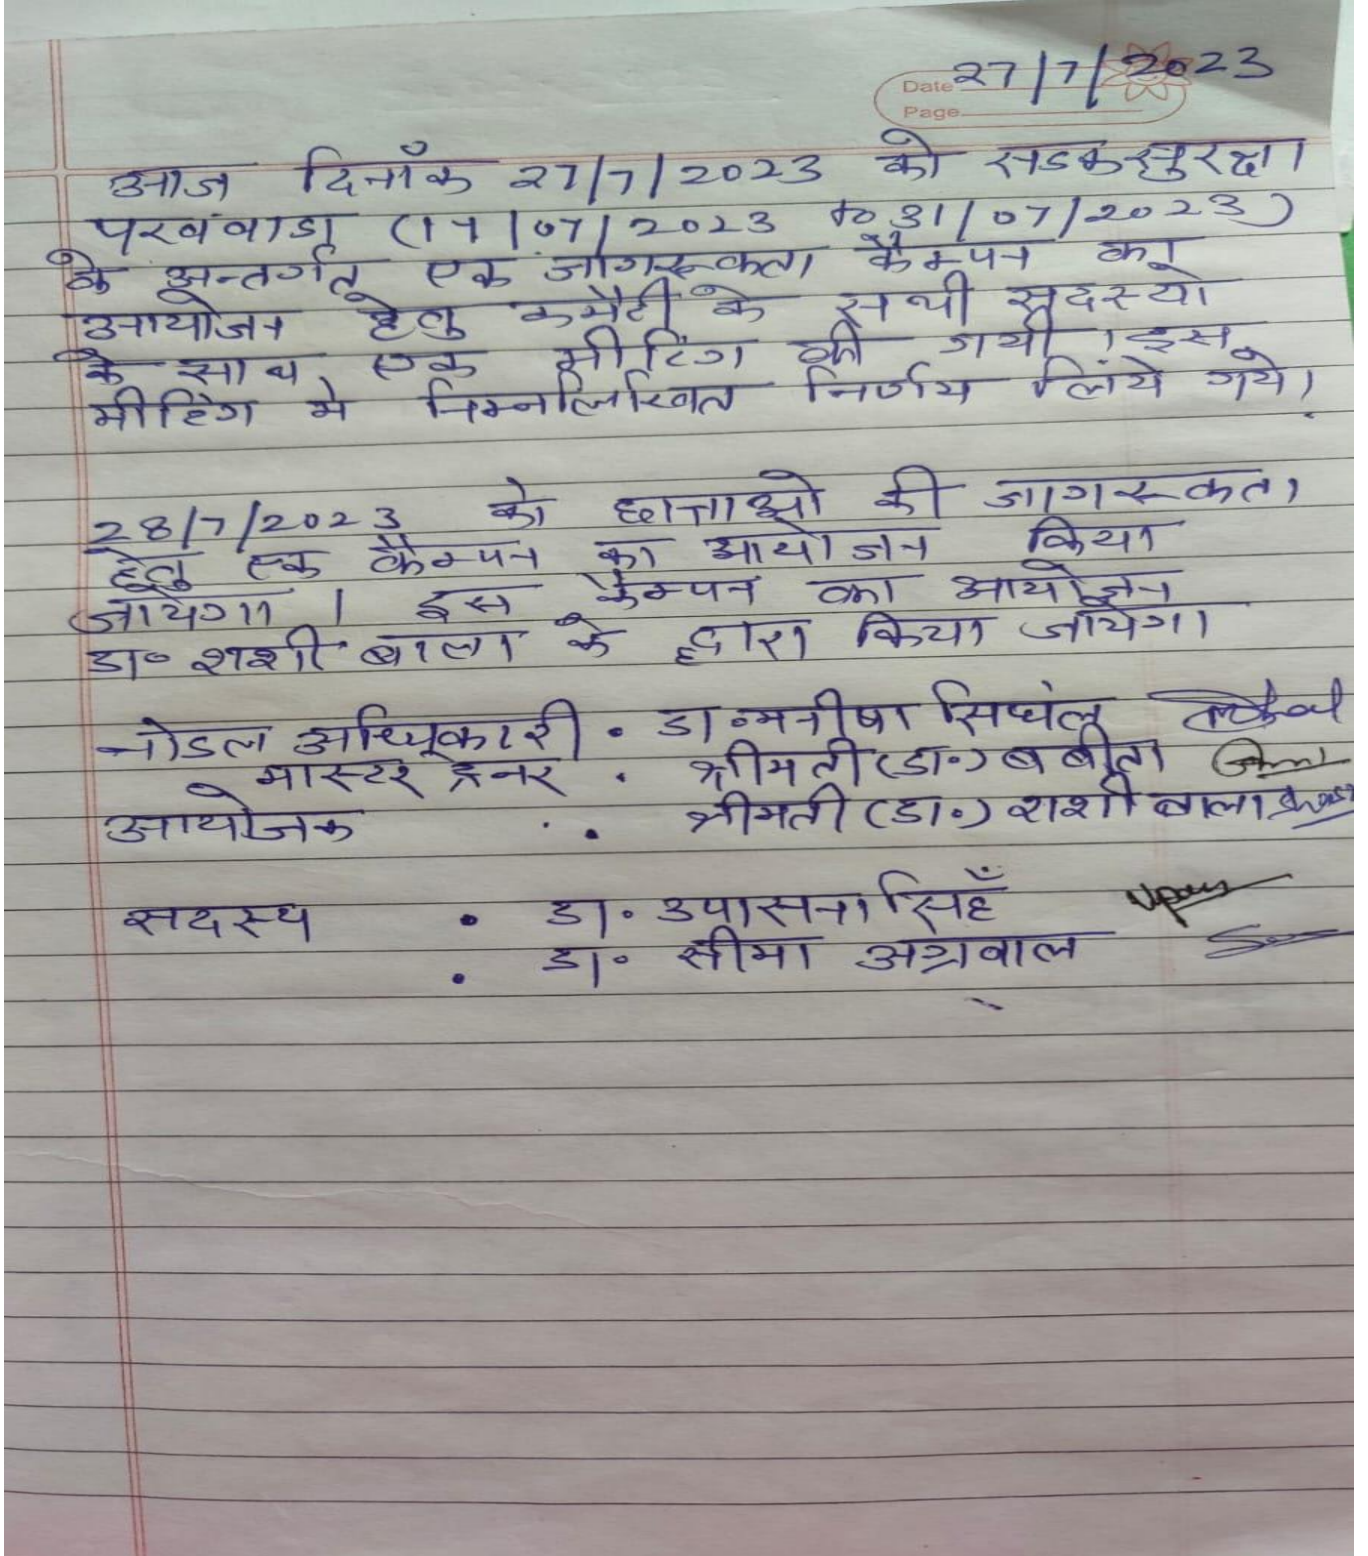 Date 27/7/2023
Page
आज दिनाँक 27/7/2023 को सडक सुरक्षा
पखवाडा (17/07/2023 to 31/07/2023)
के अन्तर्गत एक जागरूकता कैम्पन का
आयोजन हेतु कमैटी के सभी सदस्यो
के साथ एक मीटिंग की गयी । इस
मीटिंग मे निम्नलिखित निर्णय लिये गये।
28/7/2023 को छात्राओ की जागरूकता
हेतु एक कैम्पन का आयोजन किया
जायेगा । इस कैम्पन का आयोजन
डा० शशी बाला के द्वारा किया जायेगा
नोडल अधिकारी • डा० मनीषा सिंघल
मास्टर ट्रेनर • श्रीमती (डा०) बबीता
आयोजक • श्रीमती (डा०) शशी बाला
सदस्य • डा० उपासना सिहँ
• डा० सीमा अग्रवाल